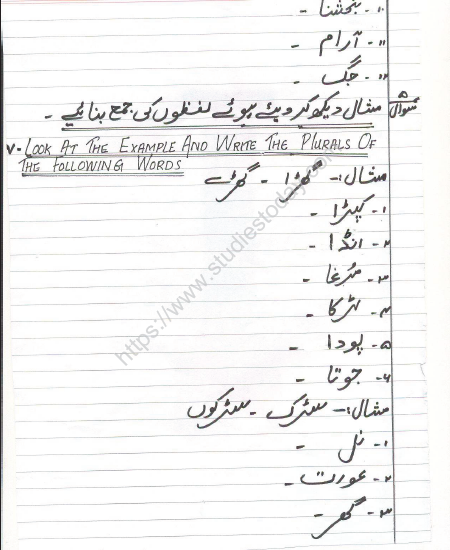 ۱۰- بخشنا -
۱۱- آرام -
۱۲- جگ -
سوال مثال دیکھ کر دیئے ہوئے لفظوں کی جمع بنائیے -
V- LOOK AT THE EXAMPLE AND WRITE THE PLURALS OF
THE FOLLOWING WORDS
مثال:- گھڑا - گھڑے
۱- کپڑا -
۲- انڈا -
۳- مرغا -
۴- لڑکا -
۵- پودا -
۶- جوتا -
مثال:- سڑک - سڑکوں
۱- نل -
۲- عورت -
۳- گھر -
https://www.studiestoday.com